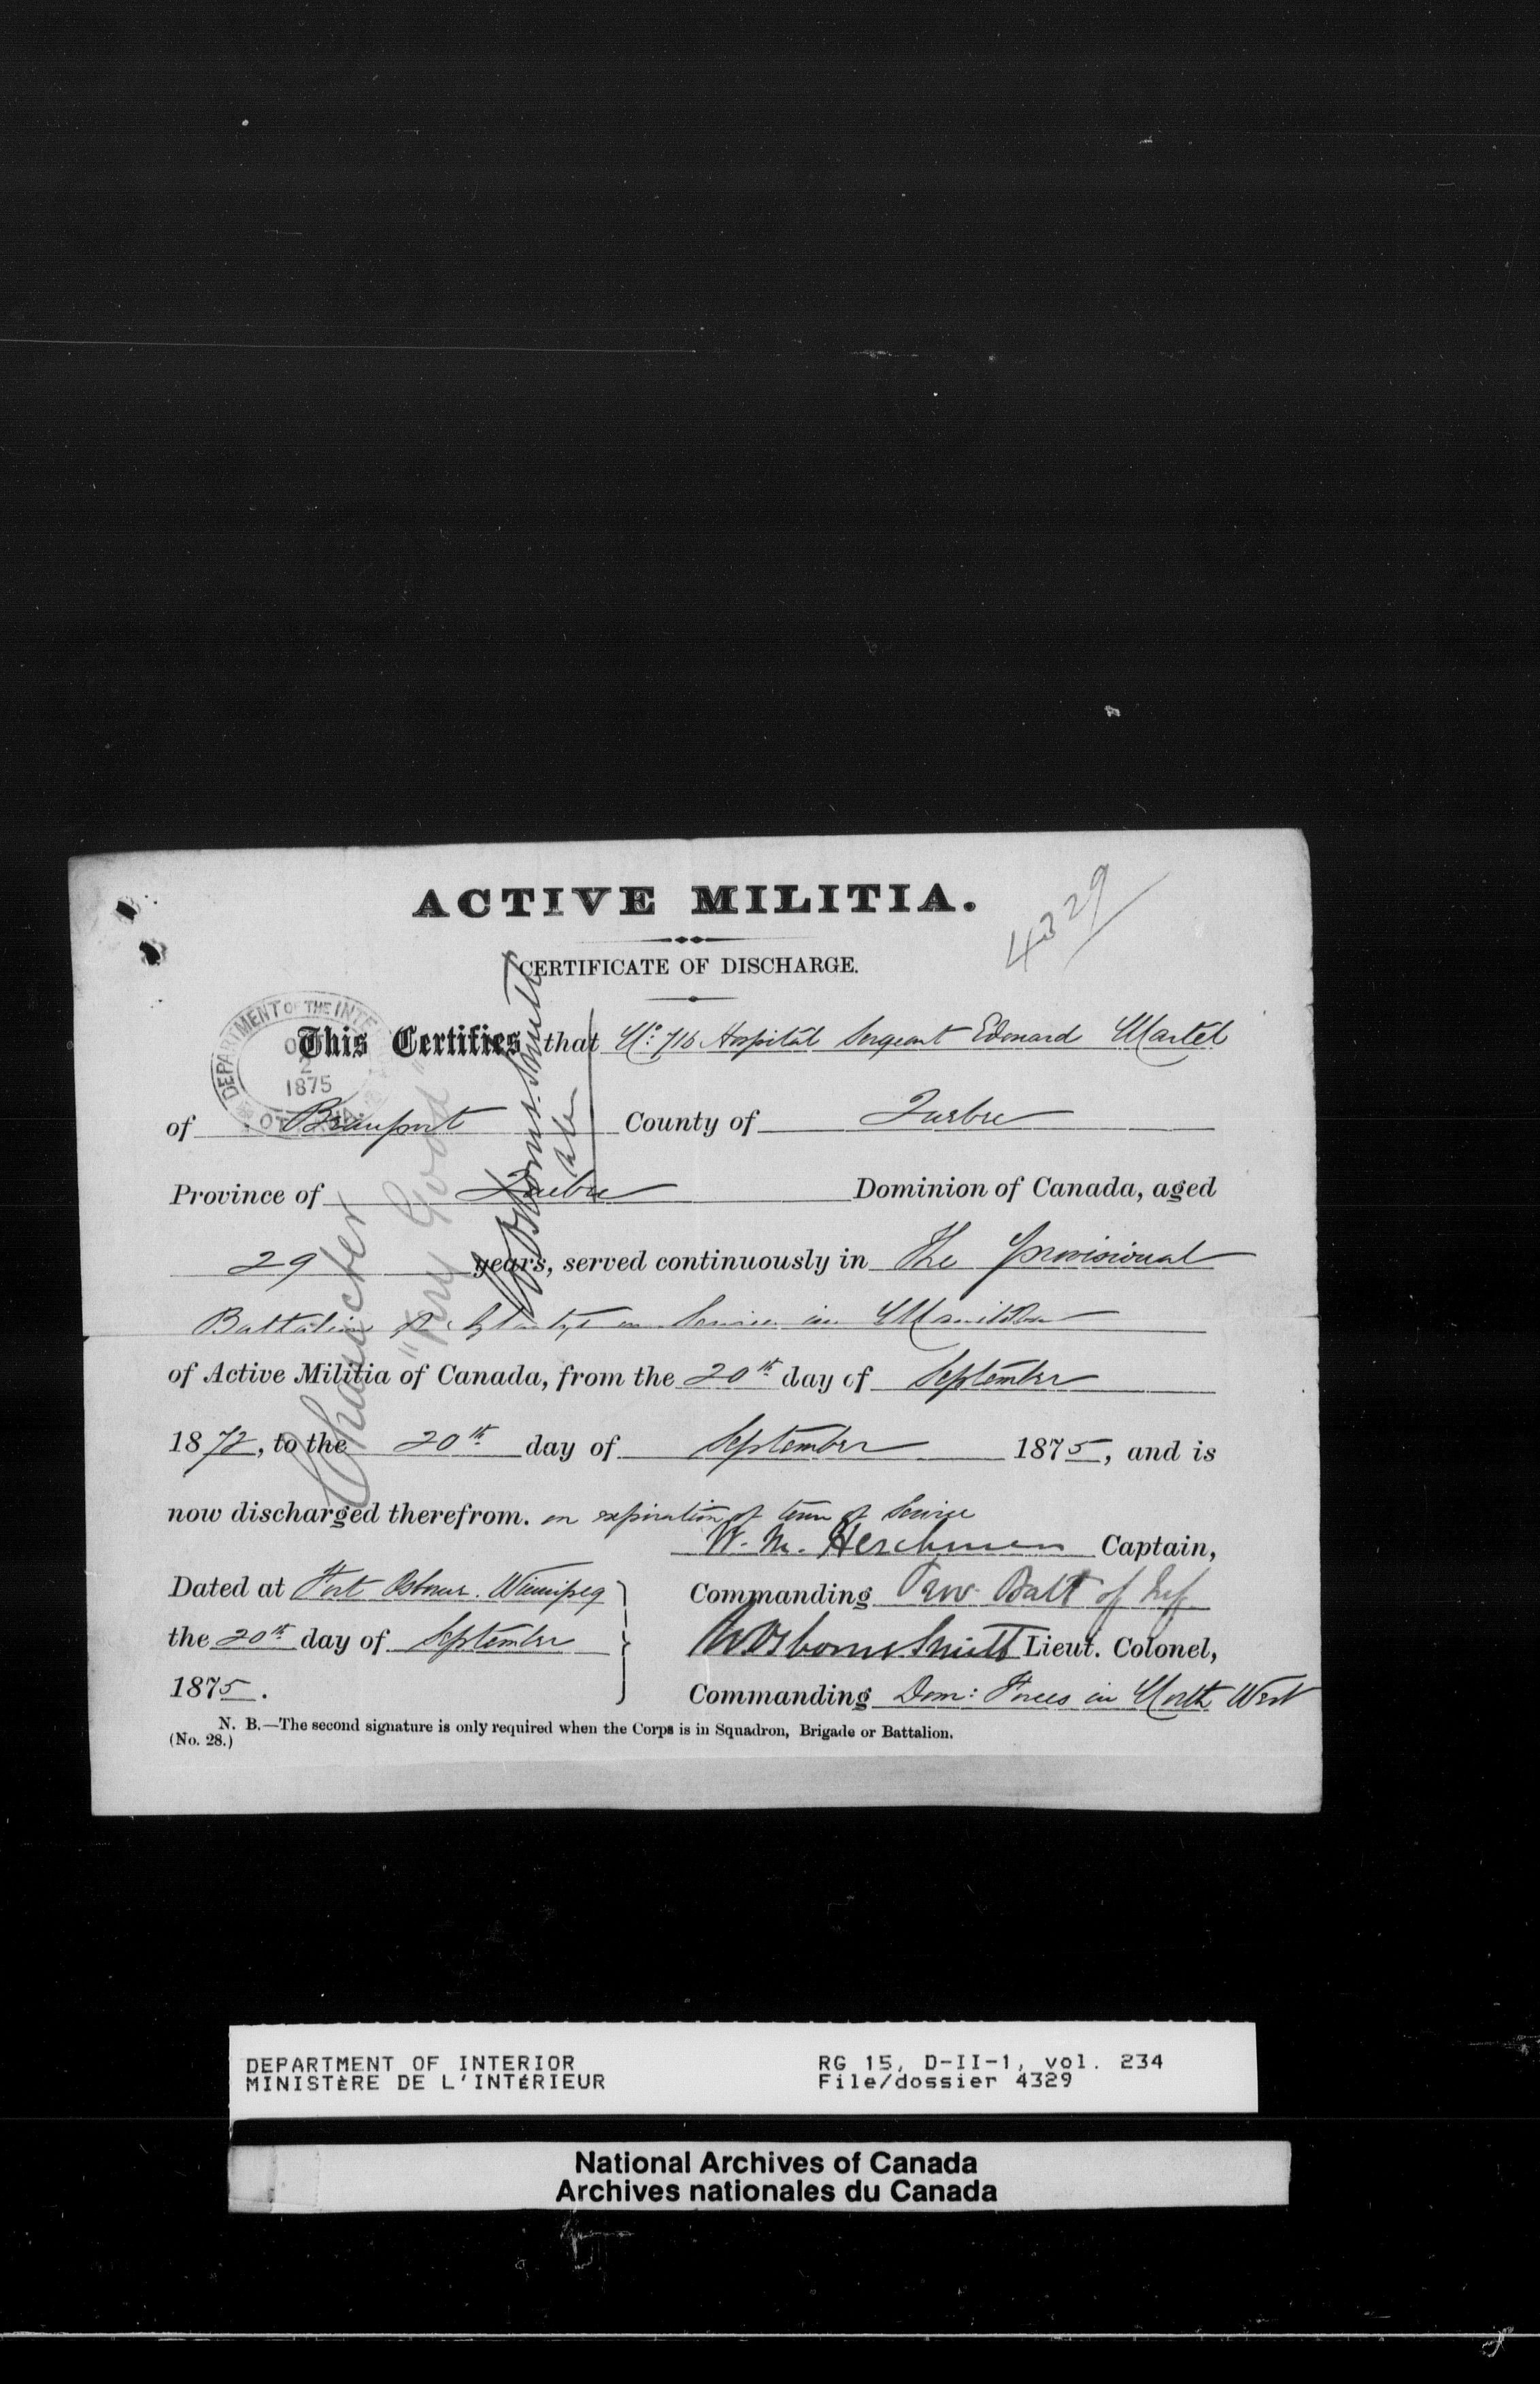 ACTIVE MILITIA.
4329
CERTIFICATE OF DISCHARGE.
DEPARTMENT OF THE INTE
2
1875
This Certifies that No. 716 Hospital Sergeant Edouard Martel
of Beauport County of Quebec
Province of Quebec Dominion of Canada, aged
29 years, served continuously in The Provisional
Battalion of Infantry on Service in Manitoba
of Active Militia of Canada, from the 20th day of September
1872, to the 20th day of September 1875, and is
now discharged therefrom. on expiration of term of Service
W. M. Herchmer Captain,
Dated at Fort Osborne. Winnipeg
Commanding Prov. Batt of Inf
the 20th day of September
W Osborne Smith Lieut. Colonel,
1875.
Commanding Dom: Forces in North West
N. B.—The second signature is only required when the Corps is in Squadron, Brigade or Battalion.
(No. 28.)
Character
"Very Good"
W Osborne Smith
DEPARTMENT OF INTERIOR
MINISTÈRE DE L'INTÉRIEUR
RG 15, D-II-1, vol. 234
File/dossier 4329
National Archives of Canada
Archives nationales du Canada